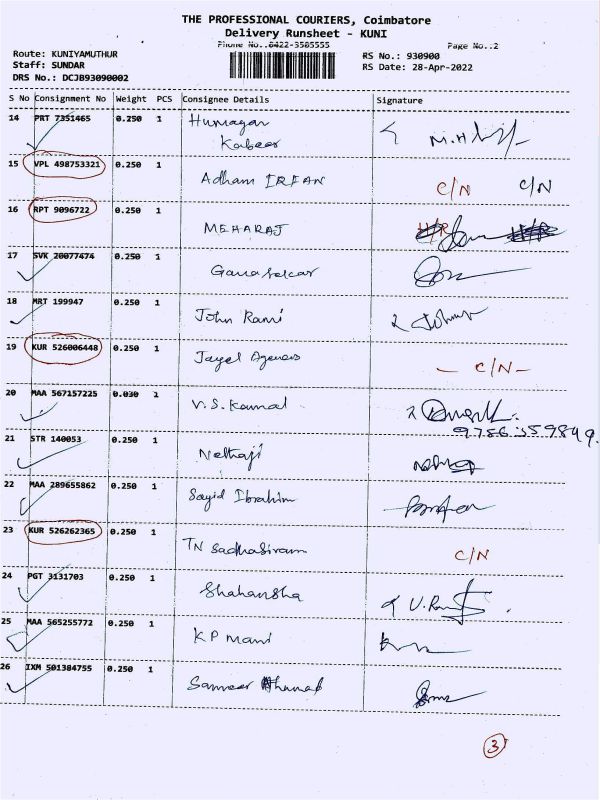 THE PROFESSIONAL COURIERS, Coimbatore
Delivery Runsheet - KUNI
Phone No..0422-3585555
Page No..2
Route: KUNIYAMUTHUR
Staff: SUNDAR
DRS No.: DCJB93090002
RS No.: 930900
RS Date: 28-Apr-2022
S No Consignment No Weight PCS Consignee Details Signature
14 PRT 7351465 0.250 1
Kabeer
15 VPL 498753321 0.250 1 Adham IRFAN C/N C/N
16 RPT 9096722 0.250 1 MEHARAJ
17 SVK 20077474 0.250 1
18 MRT 199947 0.250 1 John Rani
19 KUR 526006448 0.250 1 - C/N -
20 MAA 567157225 0.030 1 V.S. Kamal
21 STR 140053 0.250 1 Nethaji
22 MAA 289655862 0.250 1 Sayid Ibrahim
23 KUR 526262365 0.250 1 TN Sadhasivam C/N
24 PGT 3131703 0.250 1 Shahansha
25 MAA 565255772 0.250 1 KP Mani
26 IXM 501384755 0.250 1 Sameer
3